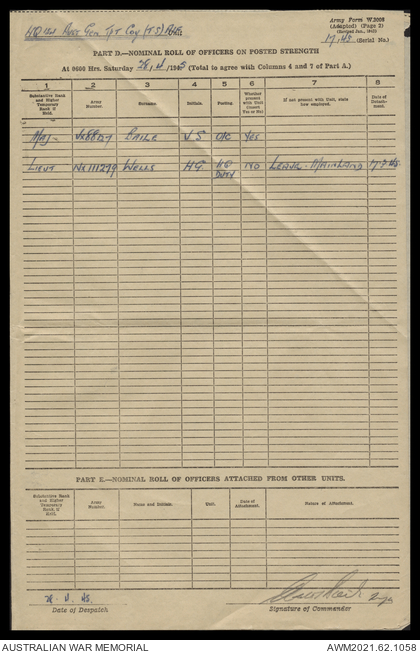 Army Form W.3008
(Adapted) (Page 2)
(Revised Jan., 1943)
17/45 (Serial No.)
HQ Gen Tpt Coy (TS)
PART D.—NOMINAL ROLL OF OFFICERS ON POSTED STRENGTH
At 0600 Hrs. Saturday (Total to agree with Columns 4 and 7 of Part A.)
1 2 3 4 5 6 7 8
Substantive Rank and Higher Temporary Rank if Held. Army Number. Surname. Initials. Posting. Whether present with Unit (Insert Yes or No) If not present with Unit, state how employed. Date of Detachment.
Maj VS O/C YES
Lieut NX111279 WELLS HG HQ DUTY NO LEAVE - MAINLAND
PART E.—NOMINAL ROLL OF OFFICERS ATTACHED FROM OTHER UNITS.
Substantive Rank and Higher Temporary Rank if Held. Army Number. Name and Initials. Unit. Date of Attachment. Nature of Attachment.
28. 11. 45.
Date of Despatch
Signature of Commander
AUSTRALIAN WAR MEMORIAL
AWM2021.62.1058